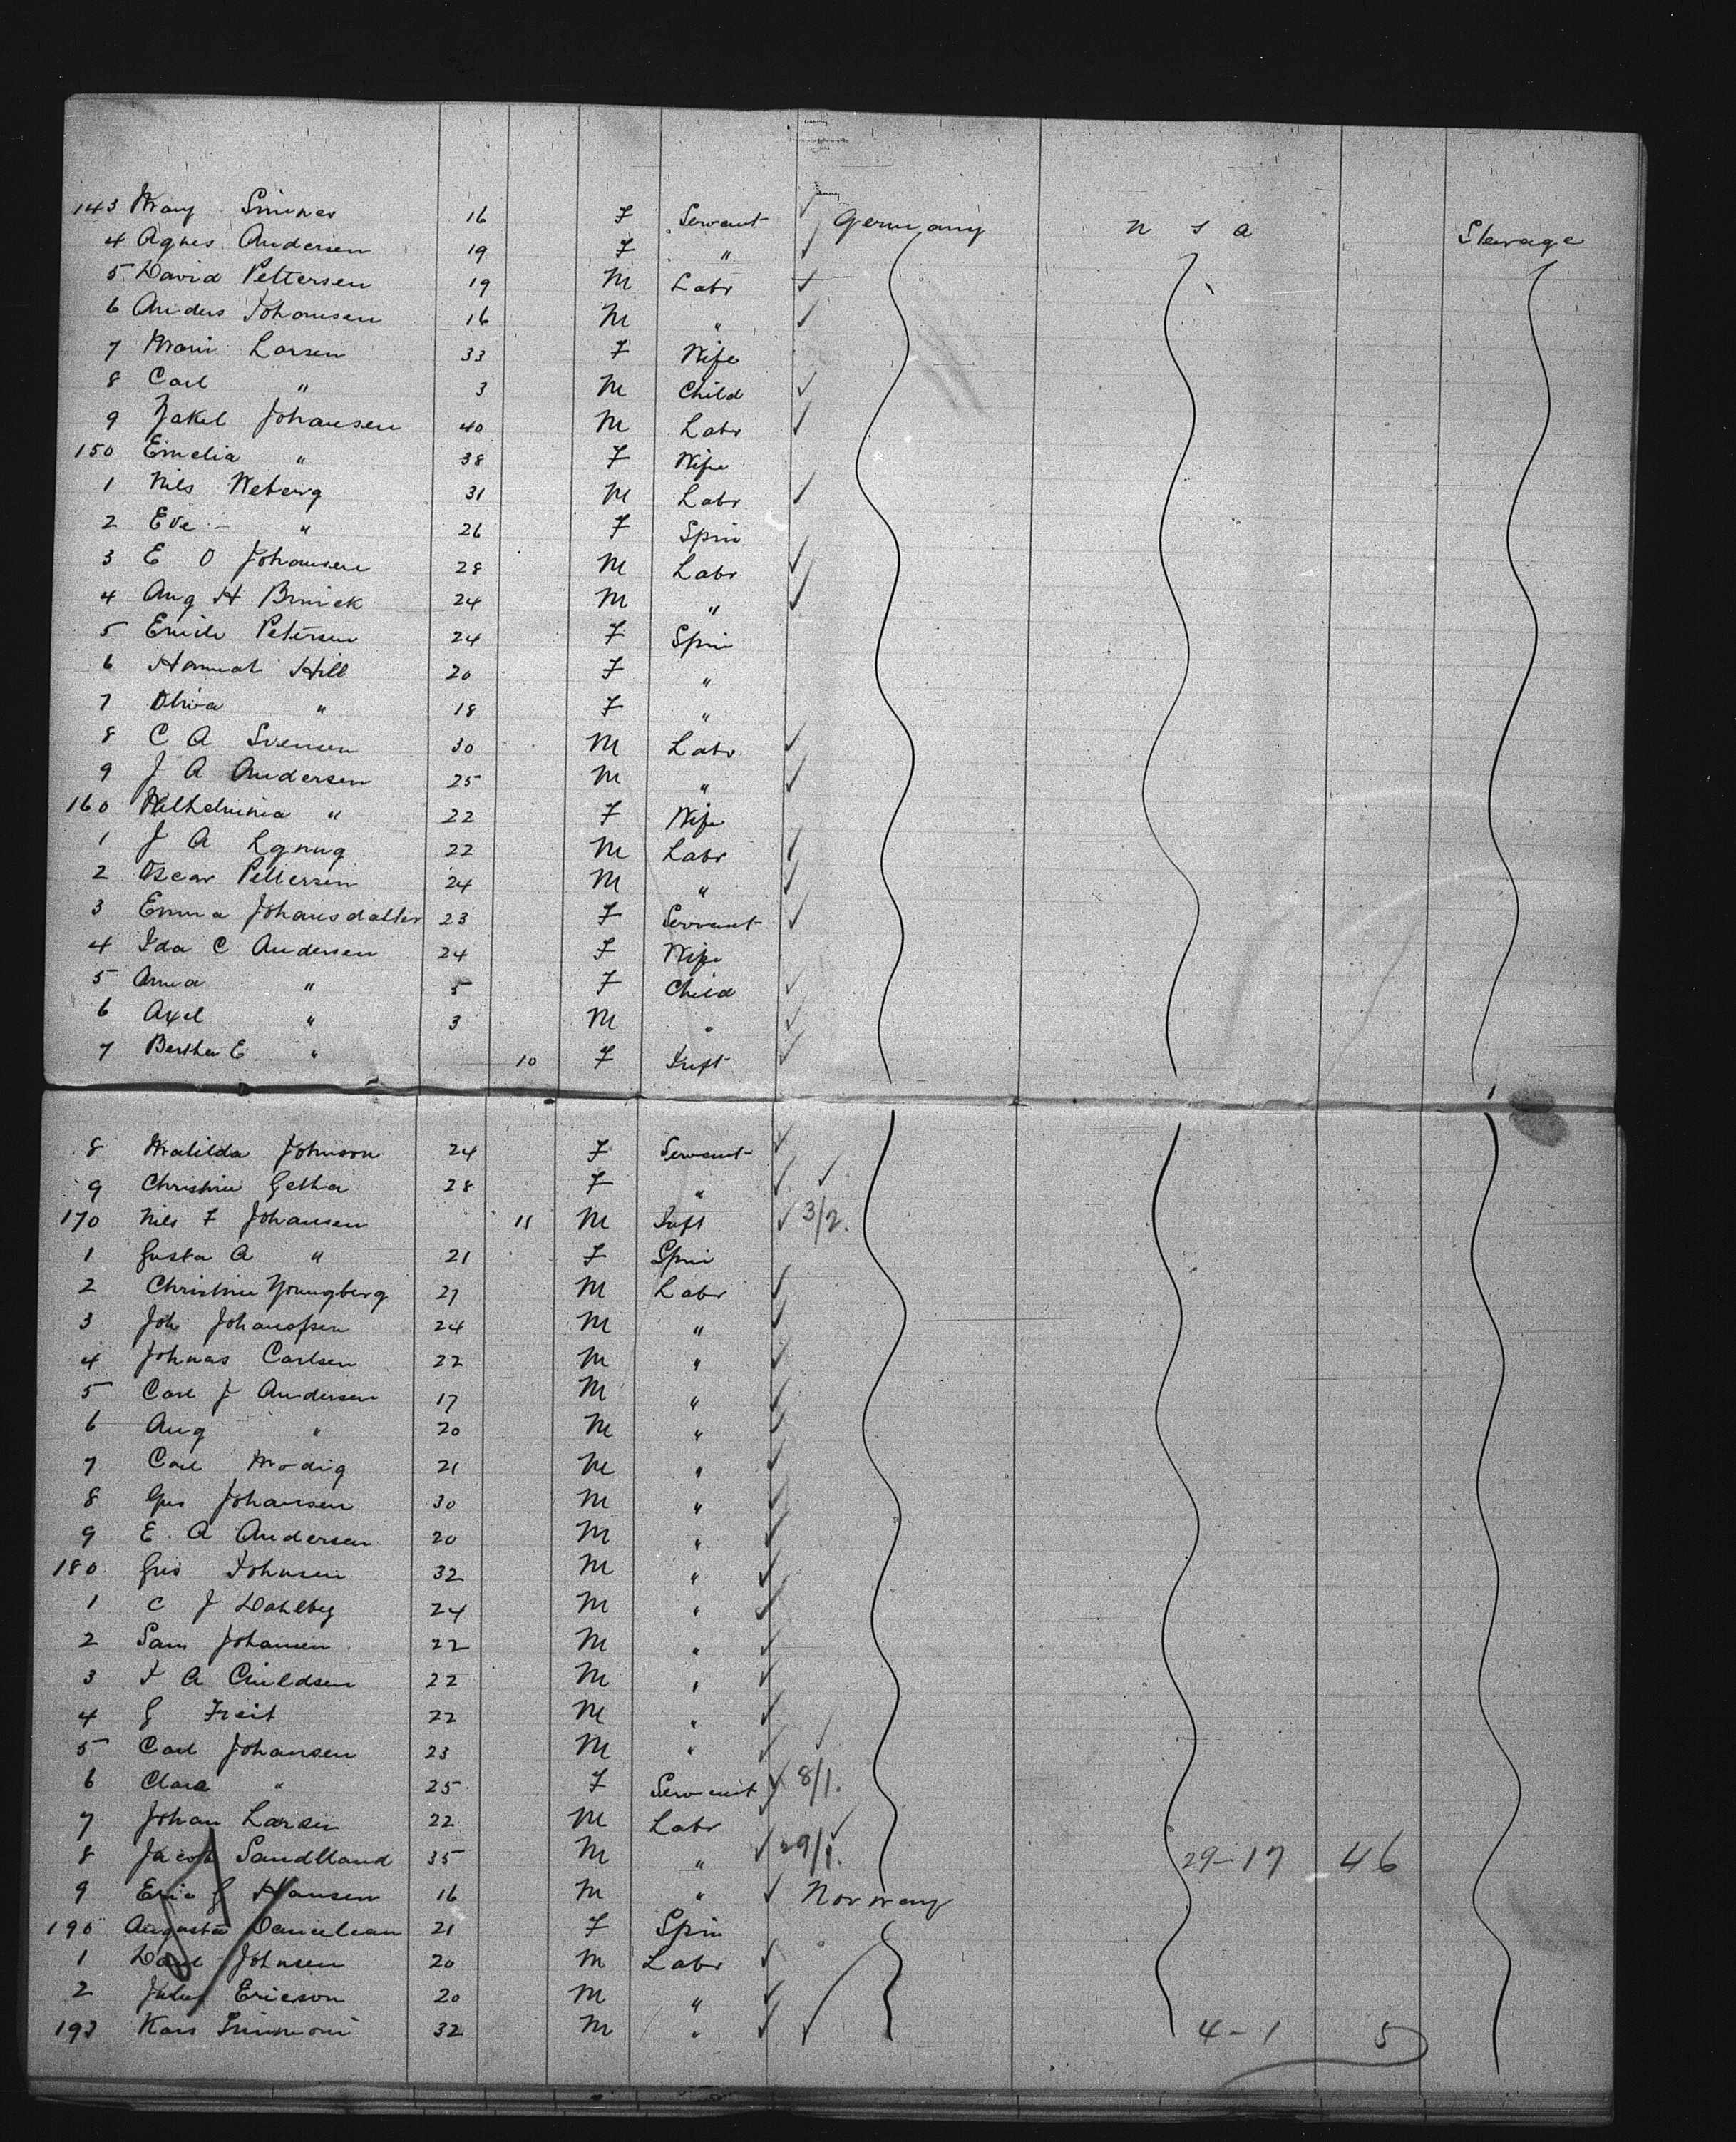 143 Mary Simmer 16 F Servant Germany U S A Steerage
4 Agnes Andersen 19 F "
5 David Pettersen 19 M Labr
6 Anders Johansen 16 M "
7 Marie Larsen 33 F Wife
8 Carl " 3 M Child
9 Jakel Johansen 40 M Labr
150 Emelia " 38 F Wife
1 Nils Weberg 31 M Labr
2 Eve " 26 F Spin
3 E O Johansen 28 M Labr
4 Aug H Brinick 24 M "
5 Emile Petersen 24 F Spin
6 Hannah Hill 20 F "
7 Olivia " 18 F "
8 C A Svensen 30 M Labr
9 J A Andersen 25 M "
160 Wilhelmina " 22 F Wife
1 J A 22 M Labr
2 Oscar Pettersen 24 M "
3 Emma Johansdatter 23 F Servant
4 Ida C Andersen 24 F Wife
5 Anna " 5 F Child
6 Axel " 3 M "
7 Bertha E " 10 F Inft
8 Matilda Johnson 24 F Servant
9 Christine Getha 28 F "
170 Nils F Johansen 11 M Inft 3/2.
1 Gusta A " 21 F Spin
2 Christine Youngberg 27 M Labr
3 Joh Johanssen 24 M "
4 Johnas Carlsen 22 M "
5 Carl J Andersen 17 M "
6 Aug " 20 M "
7 Carl Modig 21 M "
8 Gus Johansen 30 M "
9 E. A Andersen 20 M "
180 Gus Johnsen 32 M "
1 C J Dahlbeg 24 M "
2 Sam Johansen 22 M "
3 A 22 M "
4 G Freit 22 M "
5 Carl Johansen 23 M "
6 Clara " 25 F Servant 8/1.
7 Johan Larsen 22 M Labr
8 Jacob Sandland 35 M " 29/1. 29-17 46
9 Eric G Hansen 16 M " Norway
190 Augusta Danielsen 21 F Spin
1 Johnsen 20 M Labr
2 Ericson 20 M "
193 Kars 32 M " 4-1 5